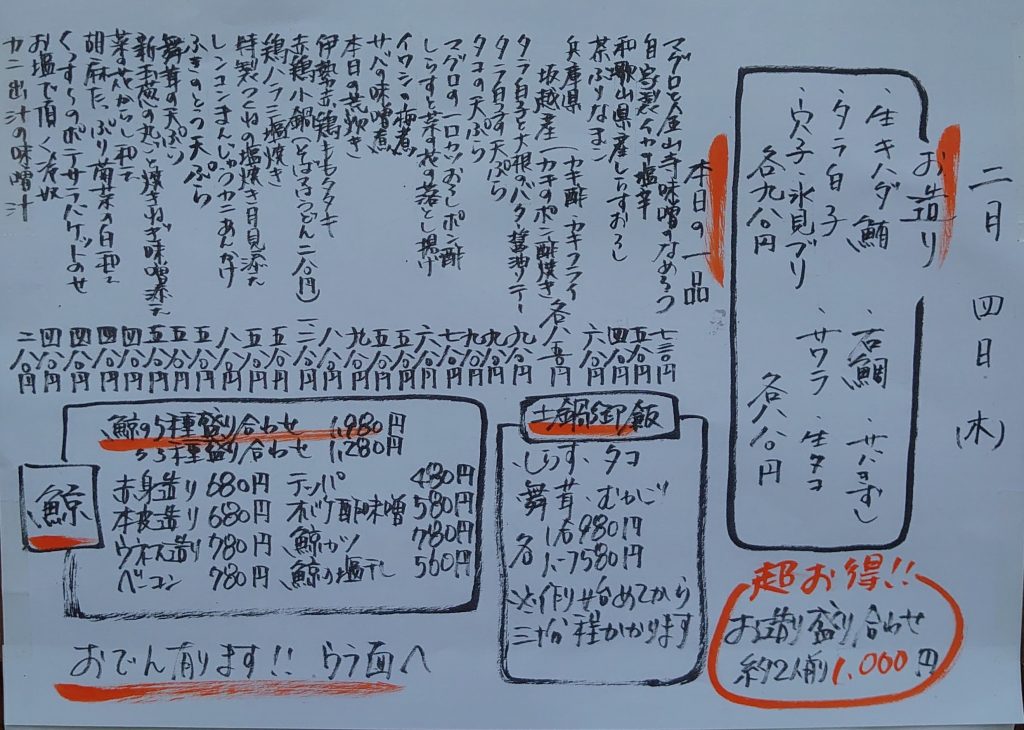 二月 四日 (木)
お造り
・生キハダ鮪
・タラ白子
・穴子・氷見ブリ
各九八〇円
・石鯛・サバきずし
・サワラ・生タコ
各八八〇円
超お得!!
お造り盛り合わせ
約2人前 1,000円
本日の一品
マグロと金山寺味噌のなめろう 七三〇円
自家製イカの塩辛 五八〇円
和歌山県産しらすおろし 四八〇円
茶ぶりなまこ 六八〇円
兵庫県
坂越産(カキ酢・カキフライ
カキのポン酢焼き 各八八〇円
タラ白子と大根のバター醤油ソテー 九八〇円
タラ白子の天ぷら 九八〇円
タコの天ぷら 九八〇円
マグロの一口カツおろしポン酢 七八〇円
しらすと菜の花の落とし揚げ 六八〇円
イワシの梅煮 五八〇円
サバの味噌煮 五八〇円
本日の荒炊き 九八〇円
伊勢赤鶏ももタタキ 八八〇円
赤鶏小鍋(そば・うどん二八〇円)
鶏ハラミ塩焼き 五八〇円
特製つくねの塩焼き月見添え 五八〇円
レンコンまんじゅうカニあんかけ 八八〇円
ふきのとう天ぷら 五八〇円
舞茸の天ぷら 五八〇円
新玉葱の丸ごと焼きねぎ味噌添え 五八〇円
菜の花からし和え 四八〇円
胡麻たっぷり菊菜の白和え 四八〇円
くんすじのポテサラバケットのせ 四八〇円
お塩で頂く冷奴 四八〇円
カニ出汁の味噌汁 二八〇円
土鍋御飯
・しらす・タコ
・舞茸・むかご
各 1.6 980円
1.- 7580円
※作り始めてから
三十分程かかります
鯨
鯨の5種盛り合わせ 1,980円
〃3種盛り合わせ 1,280円
赤身造り 680円
本皮造り 680円
ウネス造り 780円
ベーコン 780円
テッパ 480円
オバケ酢味噌 580円
鯨カツ 780円
鯨の塩干し 560円
おでん有ります!! ウラ面へ